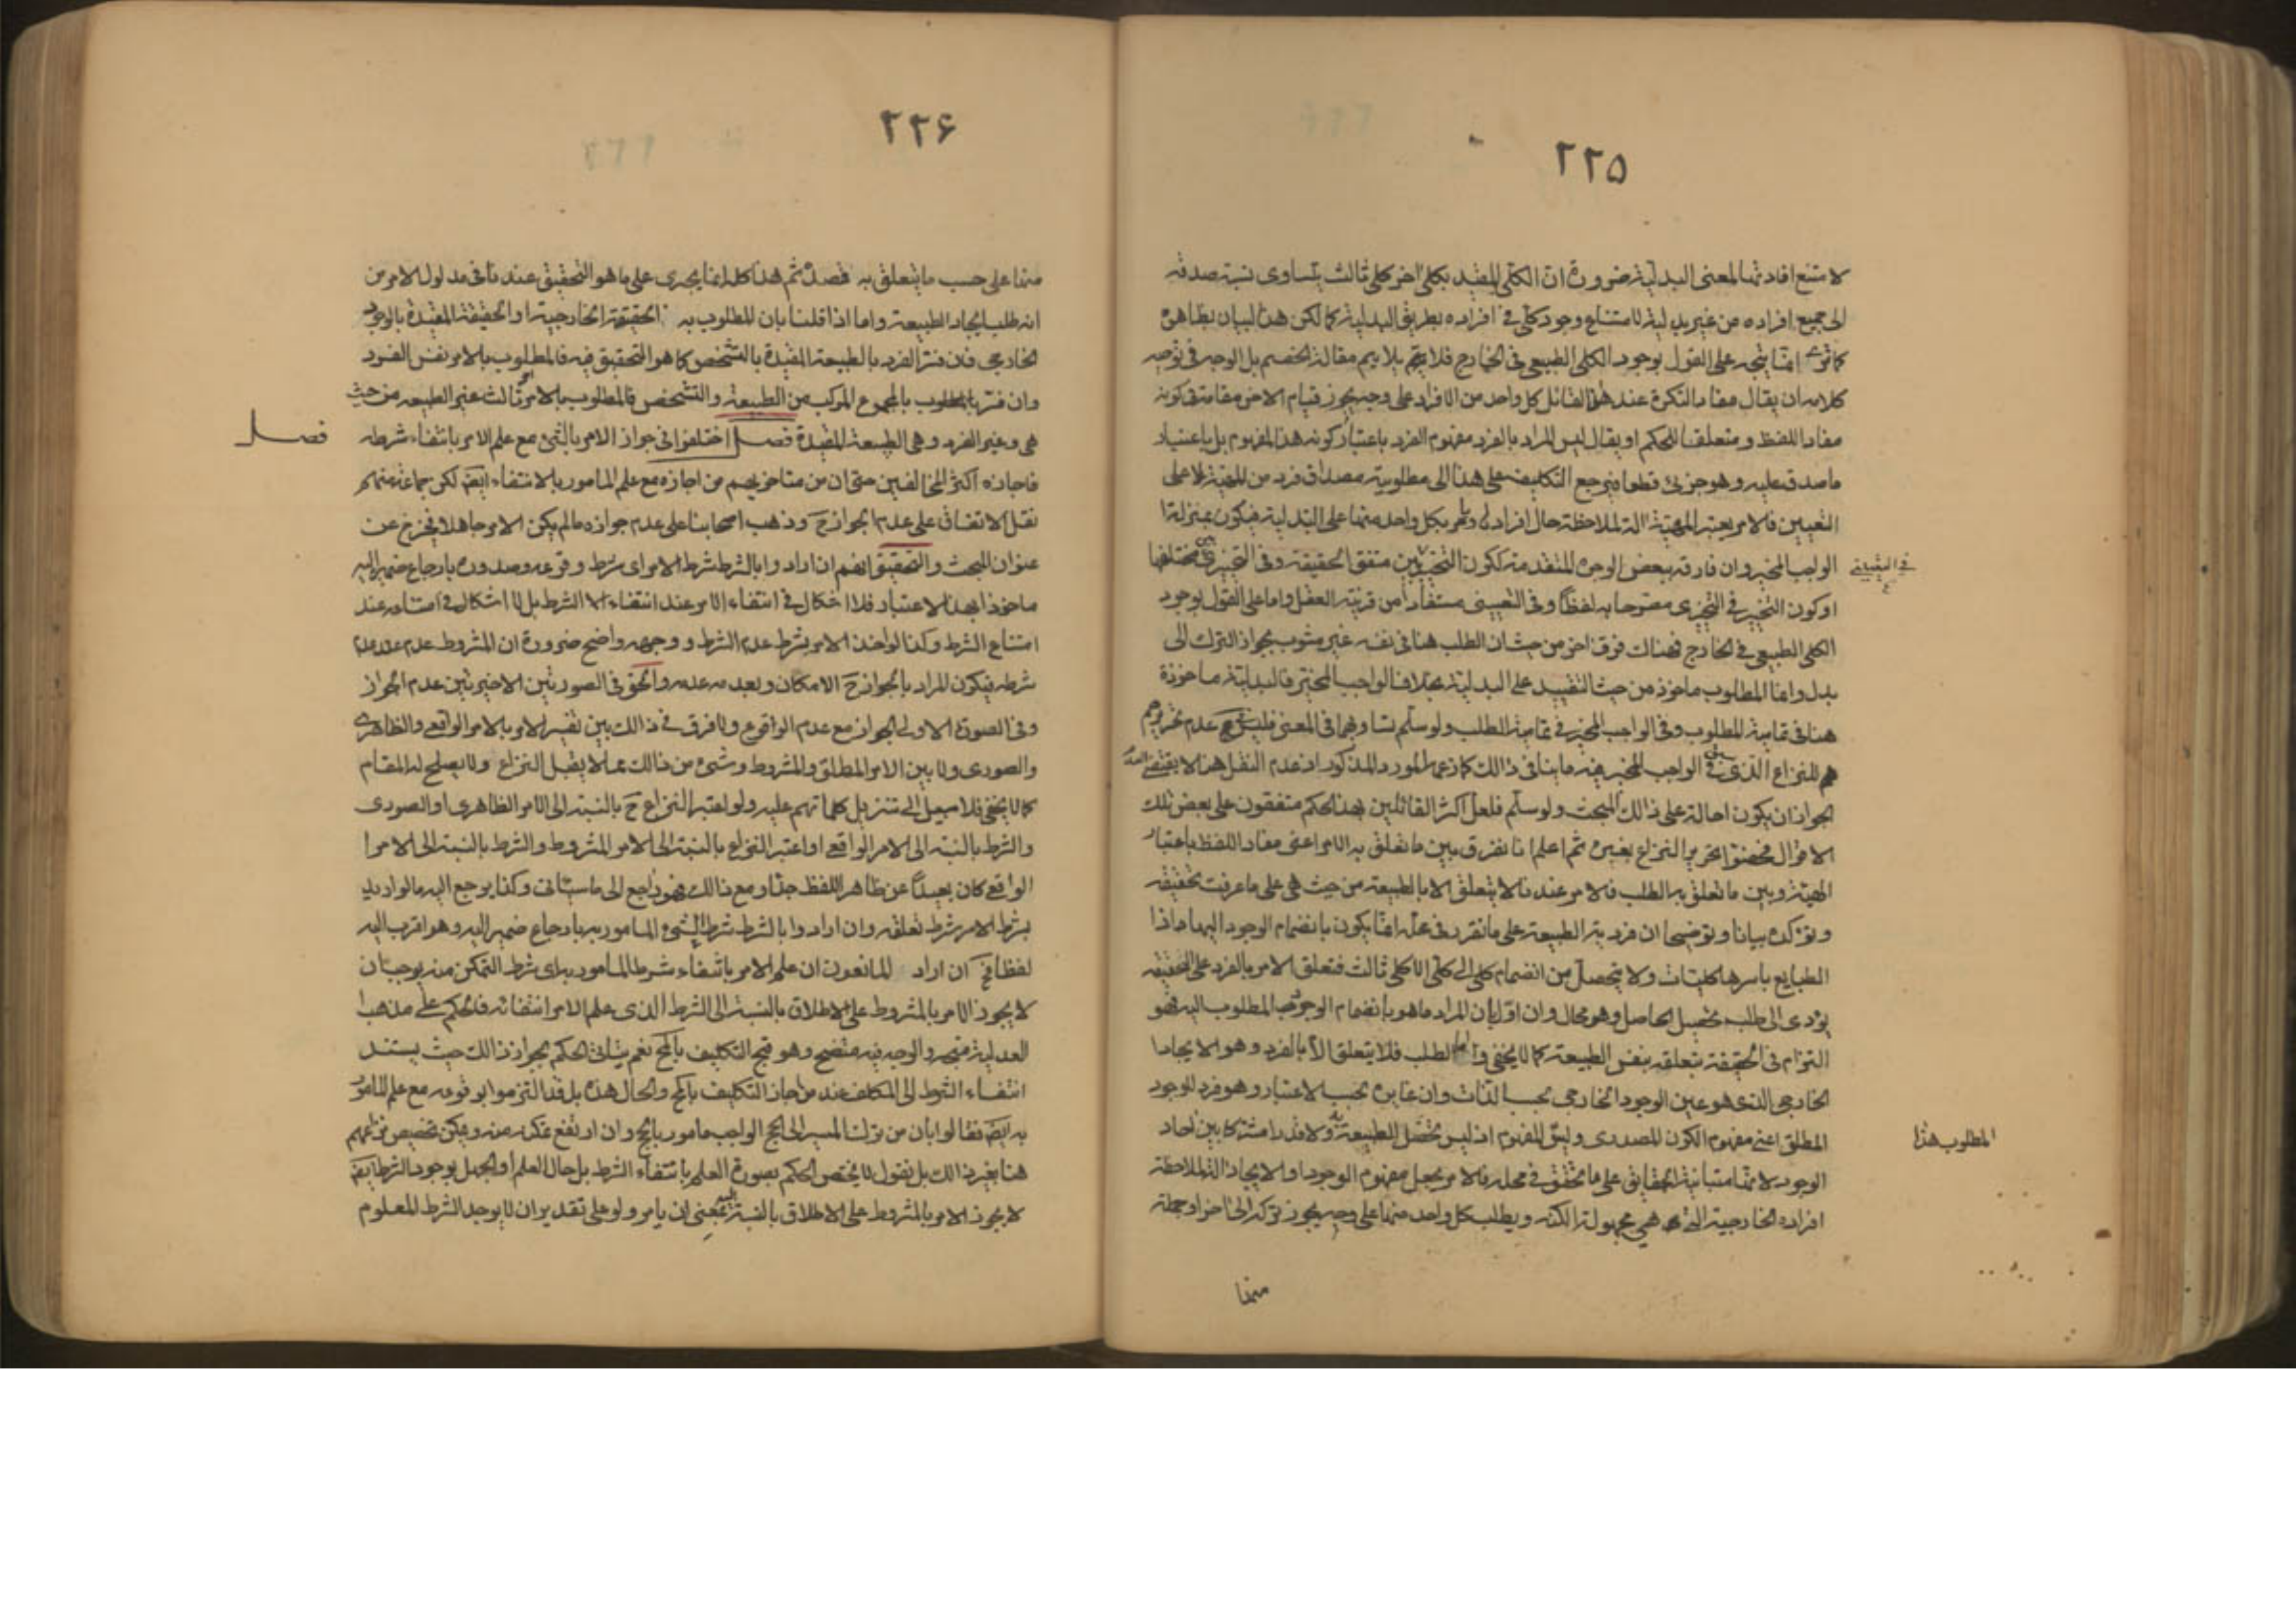 ٢٢۵
لا متنع افادتها المعنى البدلية ضرورة ان الكلى المقيد بكلى اخر كلى ثالث يتساوى نسبة صدقه
الى جميع افراده من غير بدلية لامتناع وجود كلى في افراده بطريق البدلية كما لكن هذا البيان بظاهره
كما ترى انما يتجه على القول بوجود الكلى الطبيعى فى الخارج فلا يتم مقالة الخصم بل الوجه فى توجيه
كلامه ان يقال مفاد النكرة عند هذا القائل كل واحد من الافراد على وجه يجوز قيام الاخر مقامه فى كونه
مفاد اللفظ و متعلقا للحكم او يقال ليس المراد بالفرد مفهوم الفرد باعتبار كونه هذا المفهوم بل باعتبار
ما صدق عليه و هو جزئى قطعا فيرجع التكليف على هذا الى مطلوبية مصداق فرد من المهية لا على
التعيين فالامر يعتبر المهية الة لملاحظة حال افراده و يامر بكل واحد منها على البدلية فيكون بمنزلة ا
الواجب المخير وان فارقه ببعض الوجوه المتقدمة ككون التخيير بين متفق الحقيقة وفى التخييرى مختلفها
فى التعيينى
او كون التخيير فى التخييرى مصرحا به لفظا و فى التعيينى مستفادا من قرينة العقل واما على القول بوجود
الكلى الطبيعى فى الخارج فهناك فرق اخر من حيث ان الطلب هنا فى نفسه غير مشوب بجواز الترك الى
بدل وانما المطلوب ماخوذ من حيث التقييد على البدلية بخلاف الواجب المخير فالبدلية ماخوذة
هنا فى تمامية المطلوب وفى الواجب المخير فى تمامية الطلب ولو سلم تساويهما فى المعنى فليس عدم تحريرهم
هم للنزاع الذى فى الواجب المخير فيه ما ينافى ذلك كما زعمه المورد المذكور اذ عدم النقل هنا لا يقتضى
الجواز ان يكون احالة على ذلك المبحث ولو سلم فلعل اكثر القائلين بهذا الحكم متفقون على بعض تلك
الاقوال فخصوا تحرير النزاع بغيره ثم اعلم انا نفرق بين ما تعلق به الامر اعنى مفاد اللفظ باعتبار
الهيئة وبين ما تعلق به الطلب فالامر عندنا لا يتعلق الا بالطبيعة من حيث هى على ما عرفت تحقيقه
و نؤكده بيانا وتوضيحا ان فردية الطبيعة على ما تقرر فى محله انما يكون بانضمام الوجود اليها واذا
الطبايع باسرها كليات ولا يتحصل من انضمام كلى الى كلى الا كلى ثالث فتعلق الامر بالفرد على الحقيقة
يؤدى الى طلب تحصيل الحاصل وهو محال وان اول بان المراد ما هو بانضمام الوجود المطلوب اليه فهو
التزام فى الحقيقة بتعلقه بنفس الطبيعة كما لا يخفى واما الطلب فلا يتعلق الا بالفرد و هو الايجاد ا
الخارجى الذى هو عين الوجود الخارجى بحسب الذات وان غايره بحسب الاعتبار و هو فرد للوجود
المطلق اعنى مفهوم الكون المصدرى وليس المفهوم اذ ليس تحصل الطبيعة به ولا قدرا مشتركا بين احاد
المطلوب هذا
الوجود لانها متباينة الحقايق على ما تحقق فى محله فالامر يجعل مفهوم الوجود او الايجاد الة لملاحظة
افراده الخارجية التى هى مجهولة الكنه و يطلب كل واحد منها على وجه يجوز تركه الى اخر او جملة
منها
٢٢۶
منها على حسب ما يتعلق به قصده ثم هذا كله انما يجرى على ما هو التحقيق عندنا فى مدلول الامر من
انه طلب ايجاد الطبيعة واما اذا قلنا بان المطلوب به الحقيقة الخارجية او الحقيقة المقيدة بالوجود
الخارجى فان فسر الفرد بالطبيعة المقيدة بالتشخص كما هو التحقيق فيه فالمطلوب بالامر نفس الفرد
وان فسر المطلوب بالمجموع المركب من الطبيعة والتشخص فالمطلوب بالامر امر ثالث غير الطبيعة من حيث
هى و غير الفرد و هى الطبيعة المقيدة فصل اختلفوا فى جواز الامر بالشئ مع علم الامر بانتفاء شرطه
فصل
فاجازه اكثر المخالفين حتى ان من متاخريهم من اجازه مع علم المامور بالانتفاء ايضا لكن جماعة منهم
نقل الاتفاق على عدم الجواز ح وذهب اصحابنا على عدم جوازه ما لم يكن الامر جاهلا فيخرج عن
عنوان البحث والتحقيق انهم ان ارادوا بالشرط شرط الامر اى شرط وقوعه وصدوره بارجاع ضمير اليه
ماخوذا بهذا الاعتبار فلا اشكال فى انتفاء الامر عند انتفاء الشرط بل لا اشكال فى امتناعه عند
امتناع الشرط وكذا لو اخذ الامر بشرط عدم الشرط و وجهه واضح ضرورة ان المشروط عدم عند عدم
شرطه فيكون المراد بالجواز ح الامكان و بعدمه عدمه والحق فى الصورتين الاخيرتين عدم الجواز
وفى الصورة الاولى الجواز مع عدم الوقوع ولا فرق فى ذلك بين تفسير الامر بالامر الواقعى والظاهرى
والصورى ولا بين الامر المطلق والمشروط وشئ من ذلك مما لا يقبل النزاع ولا يصلح له المقام
كما لا يخفى فلا سبيل الى تنزيل كلماتهم عليه ولو اعتبر النزاع ح بالنسبة الى الامر الظاهرى او الصورى
والشرط بالنسبة الى الامر الواقعى او اعتبر النزاع بالنسبة الى الامر المشروط والشرط بالنسبة الى الامر ا
الواقعى كان بعيدا عن ظاهر اللفظ جدا و مع ذلك فهو راجع الى ما سياتى وكذا يرجع اليه ما لو اريد
بشرط الامر شرط تعلقه وان ارادوا بالشرط شرط الشئ المامور به بارجاع ضمير اليه و هو اقرب اليه
لفظا فح ان اراد المانعون ان علم الامر بانتفاء شرط المامور به اى شرط التمكن منه يوجب ان
لا يجوز الامر بالمشروط على الاطلاق بالنسبة الى الشرط الذى علم الامر انتفائه فالحكم على مذهب ا
العدلية متجه والوجه فيه متضح و هو قبح التكليف بالمح نعم يتاتى الحكم بجواز ذلك حيث يستند
انتفاء الشرط الى المكلف عند من اجاز التكليف بالمح والحال هذه بل قد التزموا بوقوعه مع علم المامور
به ايضا فقالوا بان من ترك المسير الى الحج الواجب مامور بالحج وان ارتفع تمكنه منه ويمكن تخصيص نزاعهم
هنا بغير ذلك بل نقول لا يختص الحكم بصورة العلم بانتفاء الشرط بل حال العلم او الجهل بوجود الشرط ايضا
لا يجوز الامر بالمشروط على الاطلاق بالنسبة اليه بمعنى ان يامر ولو على تقدير ان لا يوجد الشرط المعلوم